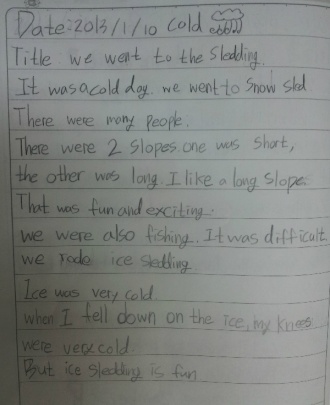 Date: 2013/1/10 cold
Title: we went to the sledding.
It was a cold day. we went to snow sled
There were many people.
There were 2 slopes. one was short,
the other was long. I like a long slope.
That was fun and exciting.
we were also fishing. It was difficult.
we rode ice sledding.
Ice was very cold.
when I fell down on the ice, my knees
were very cold.
But ice sledding is fun